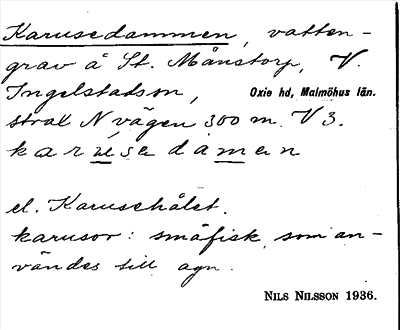 Karusedammen, vatten-
grav å St. Månstorp, V.
Ingelstadson, Oxie hd, Malmöhus län.
strax N vägen 300 m. V 3.
karusedamen
el. Karusehålet.
karusor: småfisk som an-
vändes till agn.
NILS NILSSON 1936.